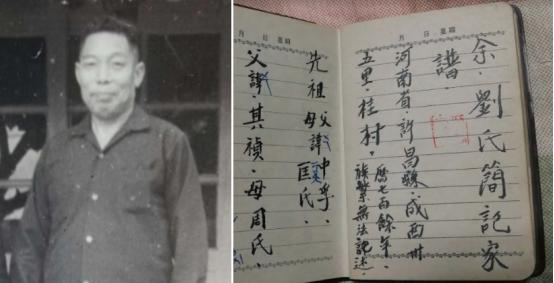 月 日 星期
余、劉氏簡記家
譜、
河南省許昌縣、城西卅
五里、桂村、
歷七百餘年、
族繁無法記述、
月 日 星期
先祖父諱中孚、
母諱匡氏、
父諱、其禎、母周氏、